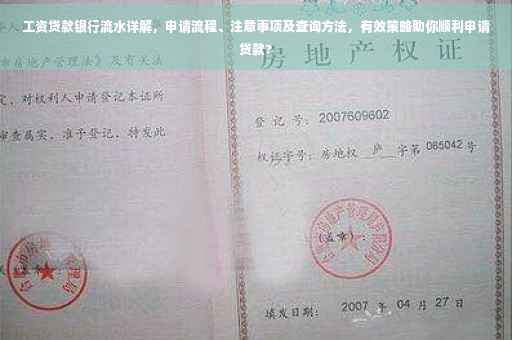 工资贷款银行流水详解，申请流程、注意事项及查询方法，有效策略助你顺利申请
贷款？
市房地产管理法》及有关法
房地产权
定，对权利人申请登记本证所
审查属实，准予登记，特发此
登记号：2007609602
权证字号：房地权 庐 字第 085042 号
（盖章）：
填发日期： 2007 年 04 月 27 日